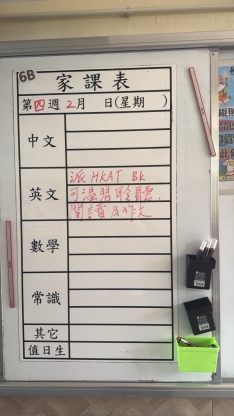 6B
家課表
第四週2月 日(星期 )
中文
英文
派 HKAT Bk
可溫習聆聽、
閱讀及作文
數學
常識
其它
值日生